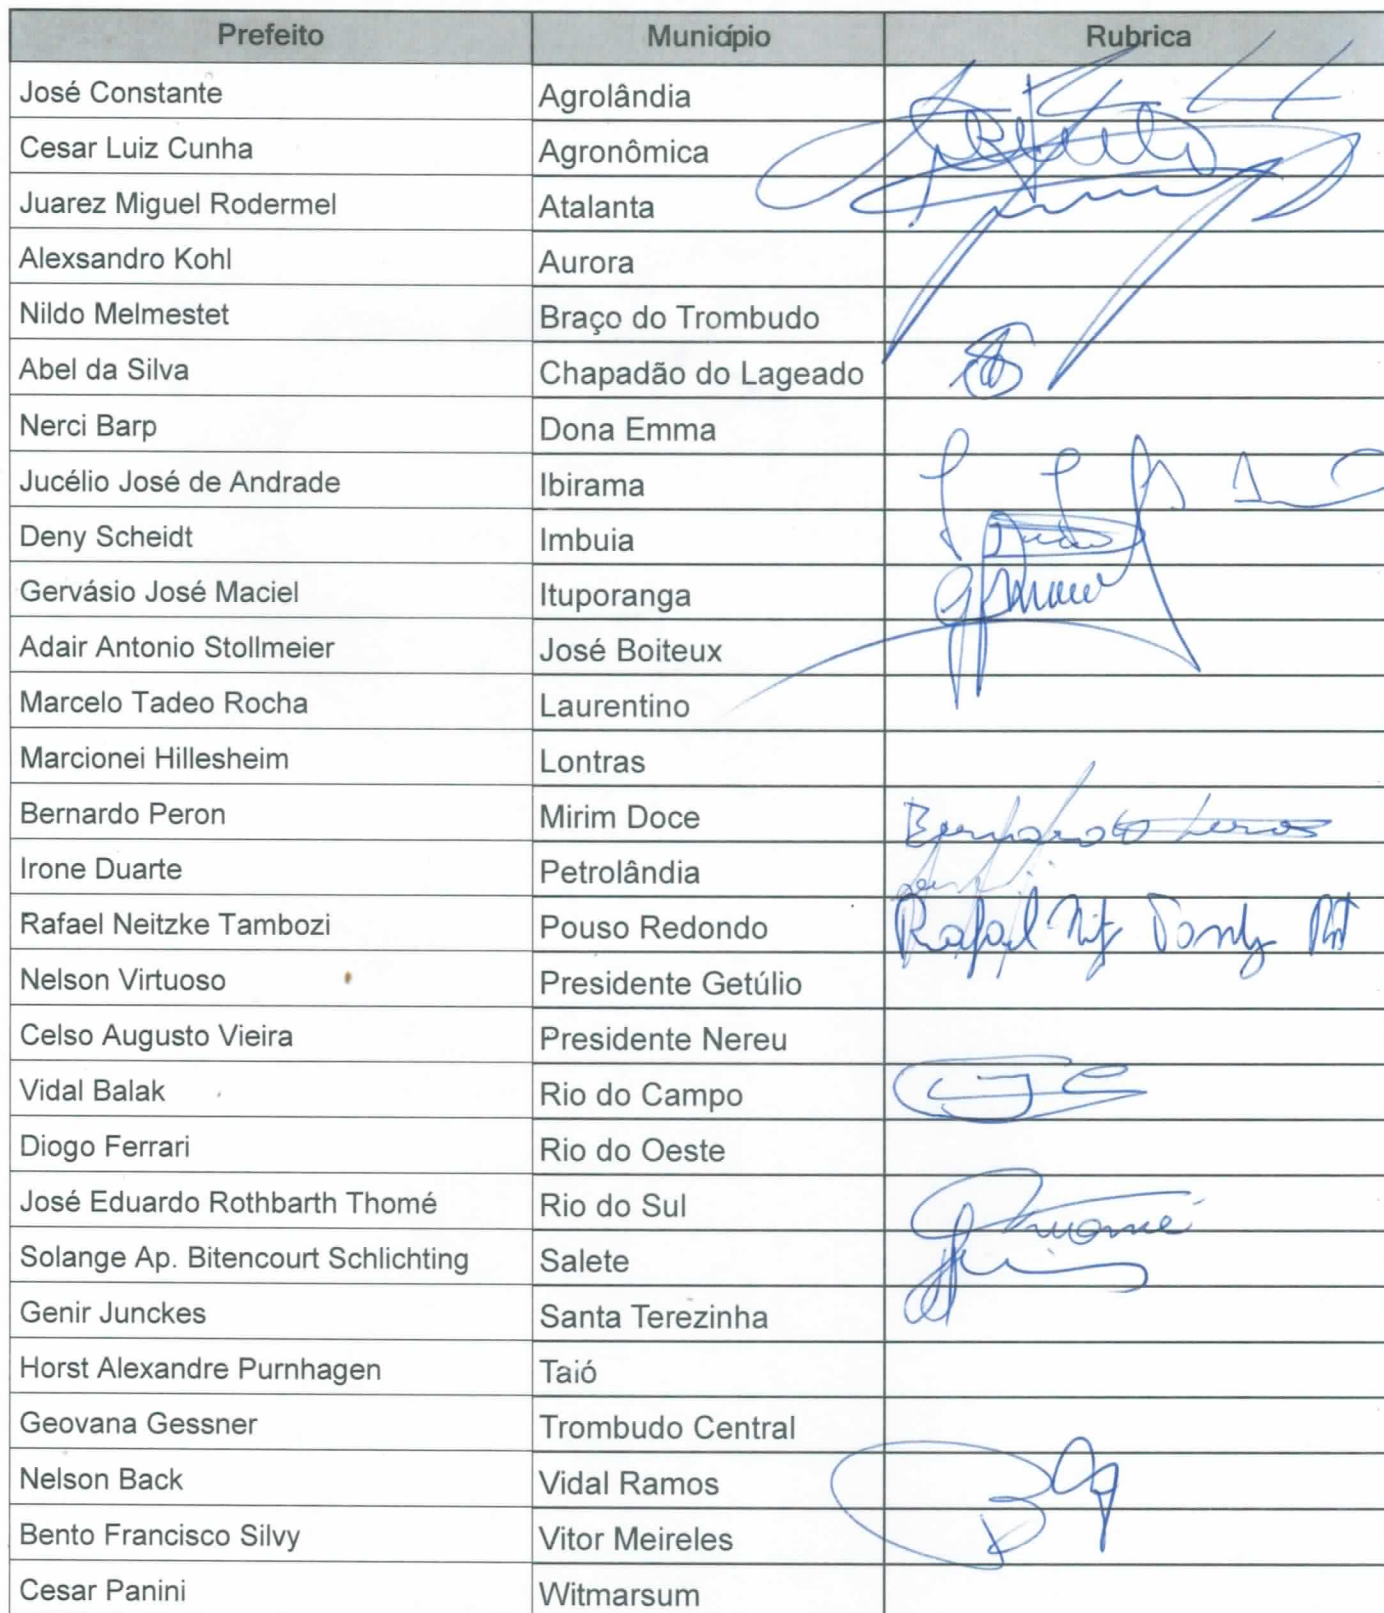 Prefeito Município Rubrica
José Constante Agrolândia
Cesar Luiz Cunha Agronômica
Juarez Miguel Rodermel Atalanta
Alexsandro Kohl Aurora
Nildo Melmestet Braço do Trombudo
Abel da Silva Chapadão do Lageado
Nerci Barp Dona Emma
Jucélio José de Andrade Ibirama
Deny Scheidt Imbuia
Gervásio José Maciel Ituporanga
Adair Antonio Stollmeier José Boiteux
Marcelo Tadeo Rocha Laurentino
Marcionei Hillesheim Lontras
Bernardo Peron Mirim Doce
Irone Duarte Petrolândia
Rafael Neitzke Tambozi Pouso Redondo Rafael
Nelson Virtuoso Presidente Getúlio
Celso Augusto Vieira Presidente Nereu
Vidal Balak Rio do Campo
Diogo Ferrari Rio do Oeste
José Eduardo Rothbarth Thomé Rio do Sul
Solange Ap. Bitencourt Schlichting Salete
Genir Junckes Santa Terezinha
Horst Alexandre Purnhagen Taió
Geovana Gessner Trombudo Central
Nelson Back Vidal Ramos
Bento Francisco Silvy Vitor Meireles
Cesar Panini Witmarsum